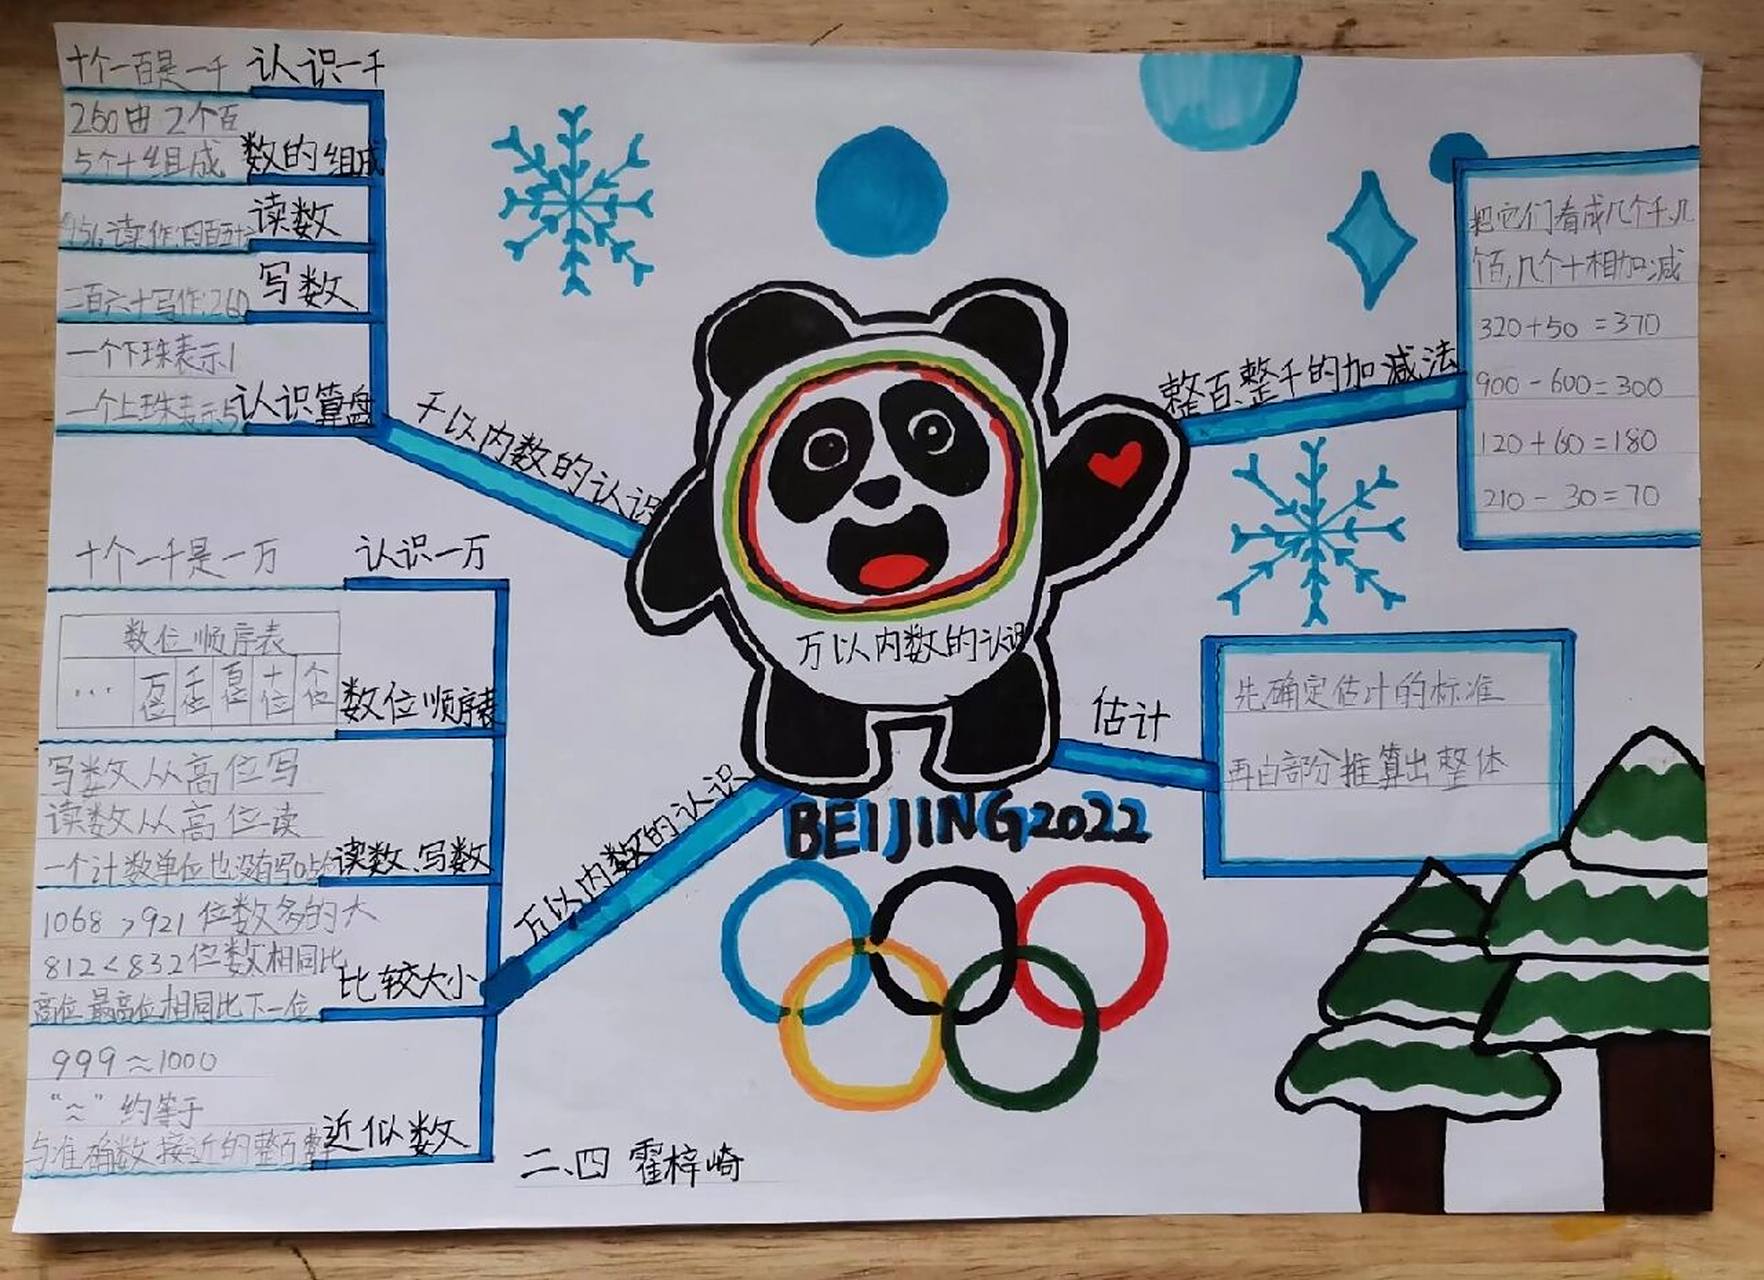 十个一百是一千 认识一千
260由2个百
5个十组成 数的组成
读作:四百五十 读数
二百六十写作:260 写数
一个下珠表示1
一个上珠表示5 认识算盘
千以内数的认识
十个一千是一万 认识一万
数位顺序表
... 万位 千位 百位 十位 个位
数位顺序表
写数从高位写
读数从高位读
一个计数单位也没有写0 读数、写数
1068>921 位数多的大
812<832 位数相同比
高位 最高位相同比下一位 比较大小
999≈1000
“≈”约等于
与准确数接近的整百整 近似数
万以内数的认识
万以内数的认识
BEIJING2022
二、四 霍梓崎
整百、整千的加减法
把它们看成几个千、几
个百,几个十相加减
320+50=370
900-600=300
120+60=180
210-30=70
估计
先确定估计的标准
再白部分推算出整体